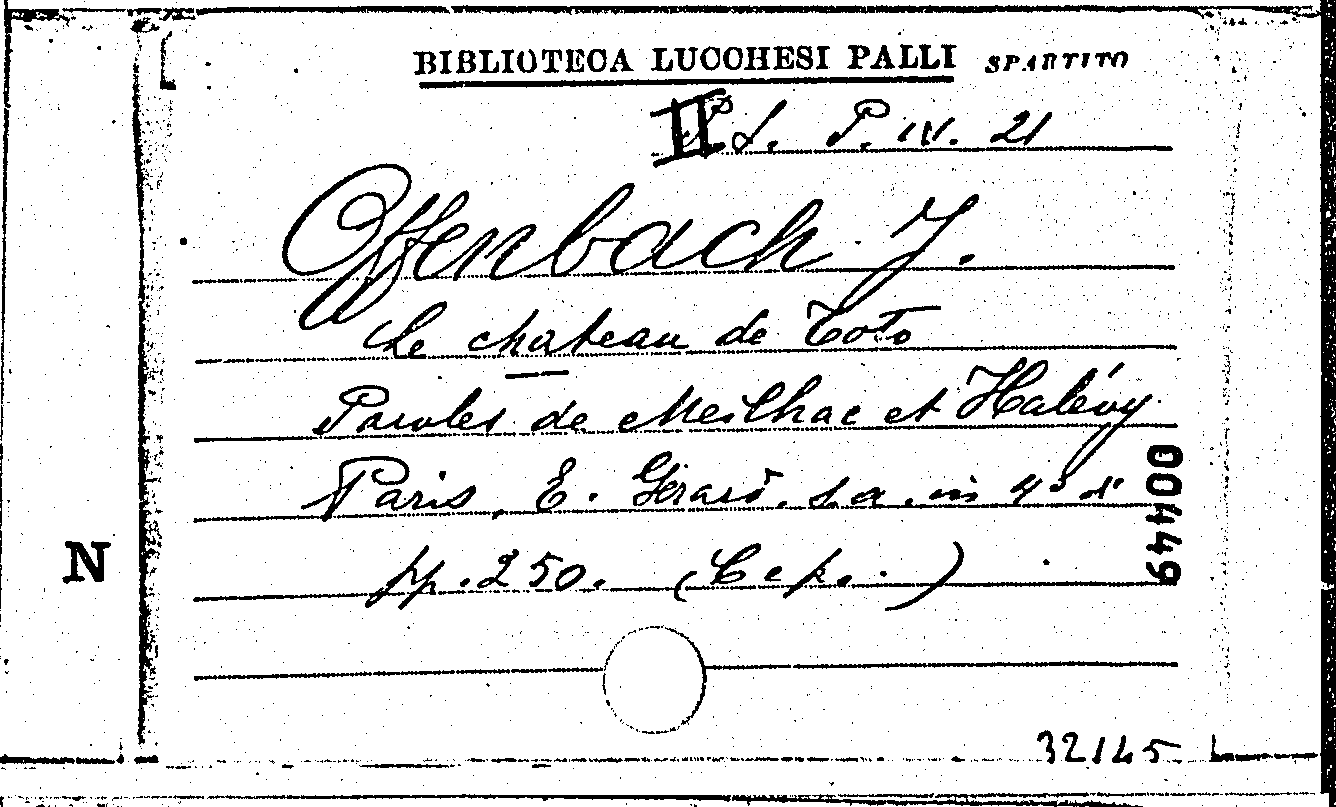 BIBLIOTECA LUCCHESI PALLI SPARTITO
II S. P. IV. 21
Offenbach J.
Le chateau de Toto
Paroles de Meilhac et Halévy
Paris, E. Gérard, s.a. in 4° di
pp. 250. (C e p. )
00449
N
32145